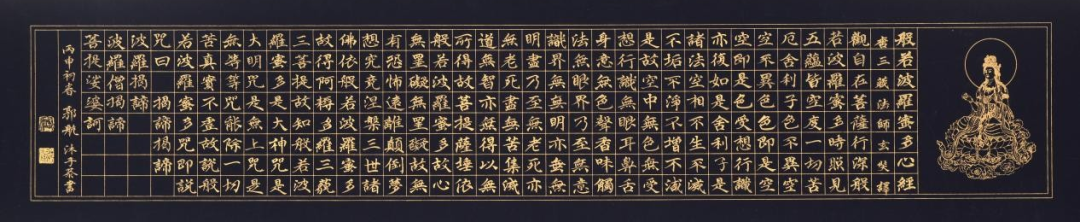 般若波羅蜜多心經
唐三藏法師玄奘譯
觀自在菩薩行深般
若波羅蜜多時照見
五蘊皆空度一切苦
厄舍利子色不異空
空不異色色即是空
空即是色受想行識
亦復如是舍利子是
諸法空相不生不滅
不垢不淨不增不減
是故空中無色無受
想行識無眼耳鼻舌
身意無色聲香味觸
法無眼界乃至無意
識界無無明亦無無
明盡乃至無老死亦
無老死盡無苦集滅
道無智亦無得以無
所得故菩提薩埵依
般若波羅蜜多故心
無罣礙無罣礙故無
有恐怖遠離顛倒夢
想究竟涅槃三世諸
佛依般若波羅蜜多
故得阿耨多羅三藐
三菩提故知般若波
羅蜜多是大神咒是
大明咒是無上咒是
無等等咒能除一切
苦真實不虛故說般
若波羅蜜多咒即說
咒曰 揭諦揭諦
波羅揭諦
波羅僧揭諦
菩提娑婆訶
丙申初春 郭 沐手恭書